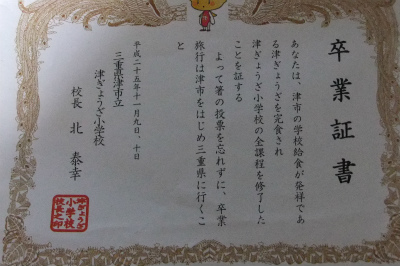 卒業証書
あなたは、津市の学校給食が発祥であ
る津ぎょうざを完食され
津ぎょうざ小学校の全課程を修了した
ことを証する
よって箸の投票を忘れずに、卒業
旅行は津市をはじめ三重県に行くこ
と
平成二十五年十一月九日、十日
三重県津市立
津ぎょうざ小学校
校長 北 泰幸
津ぎょうざ
小学校
校長之印